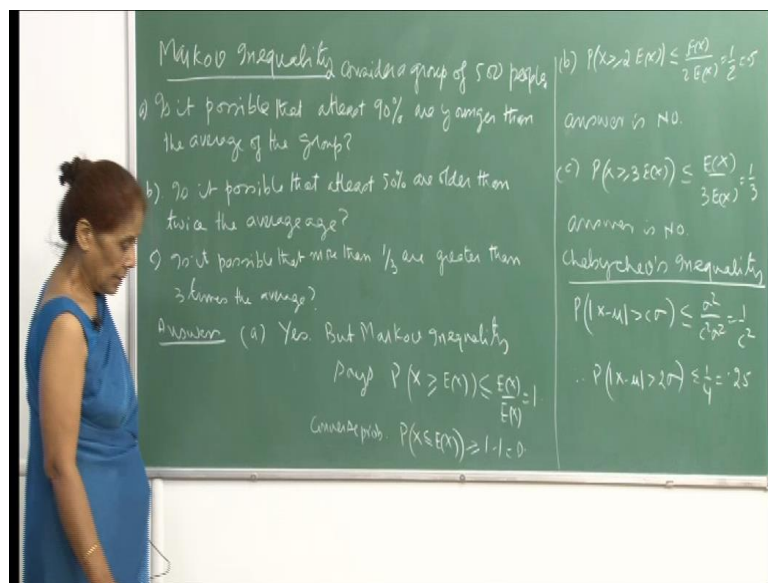 Markov Inequality Consider a group of 500 people.
a) Is it possible that atleast 90% are younger than
the average of the group?
b). Is it possible that atleast 50% are older than
twice the average age?
c) Is it possible that more than 1/3 are greater than
3 times the average?
Answer (a) Yes. But Markov Inequality
says P(X ≥ E(X)) ≤ E(X)/E(X) = 1
Converse prob. P(X ≤ E(X)) ≥ 1-1 = 0.
(b) P(X ≥ 2 E(X)) ≤ E(X)/2E(X) = 1/2 = .5
answer is NO.
(c) P(X ≥ 3E(X)) ≤ E(X)/3E(X) = 1/3
answer is NO.
Chebychev's Inequality
P(|X-μ| > cσ) ≤ σ²/c²σ² = 1/c²
∴ P(|X-μ| > 2σ) ≤ 1/4 = .25